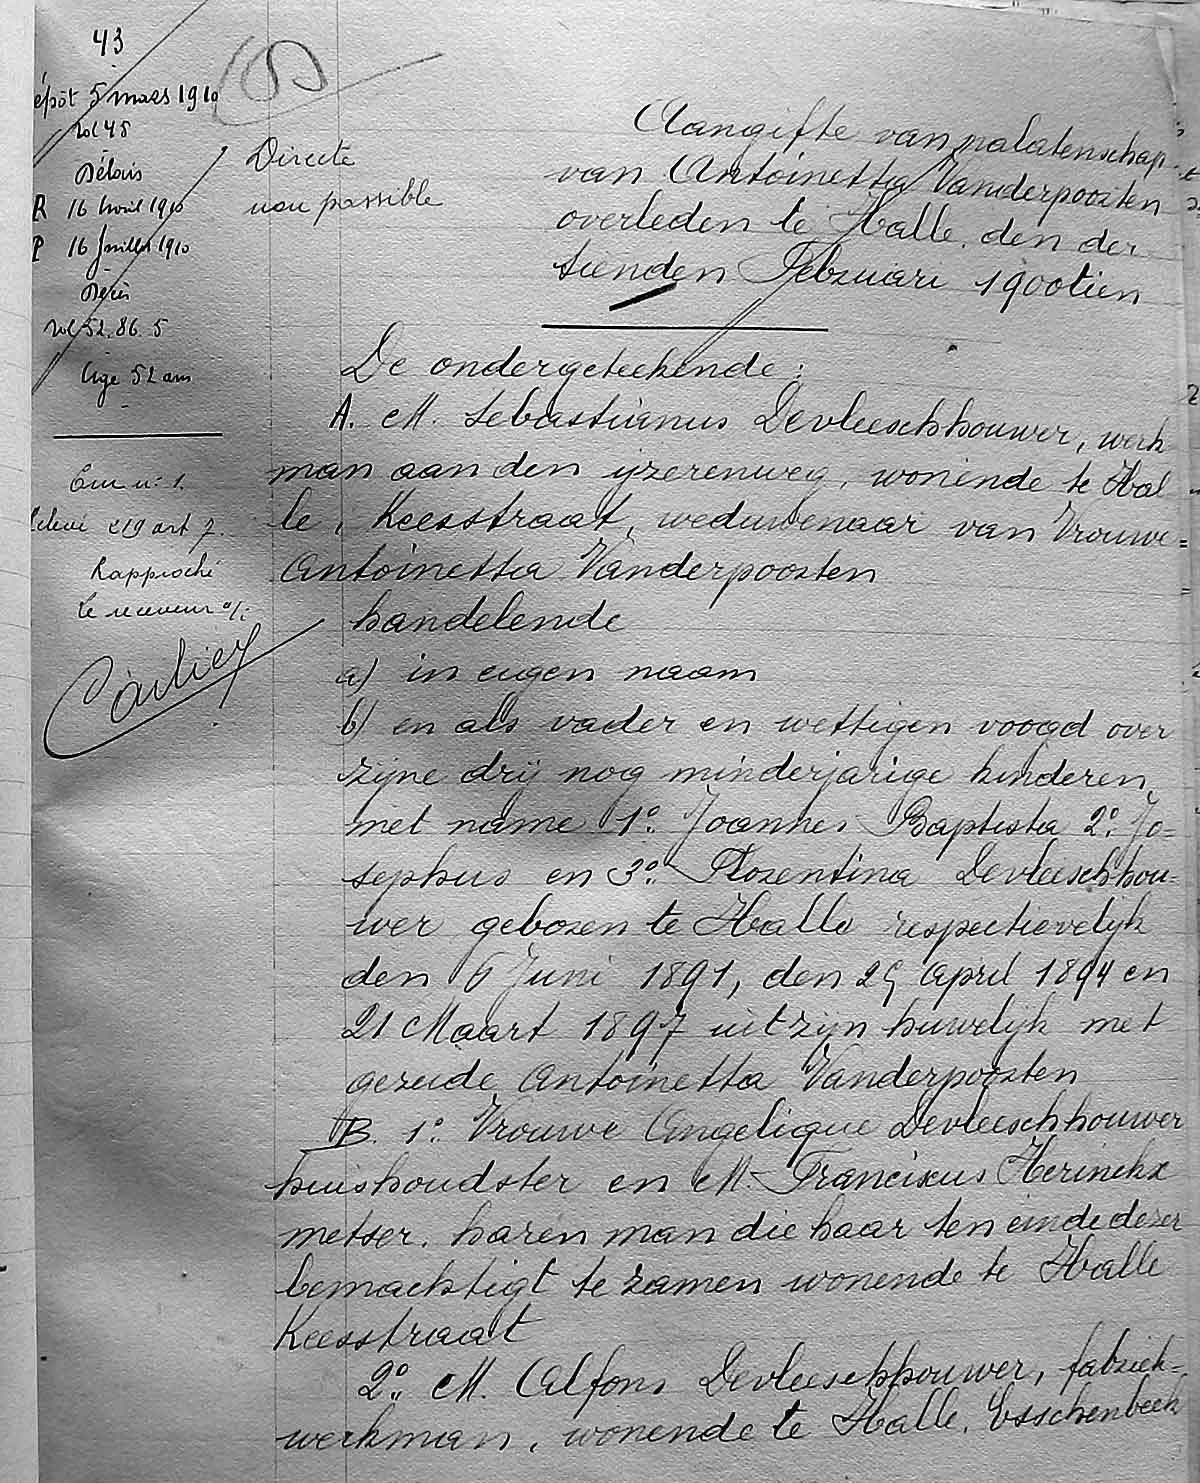 43
épôt 5 mars 1910
vol 45
Délais
R 16 avril 1910
P 16 Juillet 1910
Décès
vol 52. 86. 5
âge 52 ans
n: 1.
219 art 7.
Rapproché
Le receveur a/i
Carlier
Directe
non passible
Aangifte van nalatenschap
van Antoinetta Vanderpoorten
overleden te Halle, den der
tienden Februari 1900tien
De ondergeteekende:
A. M. Sebastianus Devleeschhouwer, werk
man aan den ijzerenweg, wonende te Hal
le, Keesstraat, weduwenaar van Vrouwe=
Antoinetta Vanderpoorten
handelende
a) in eigen naam
b) en als vader en wettigen voogd over
zijne drij nog minderjarige kinderen,
met name 1º. Joannes Baptista 2º. Jo=
sephus en 3º. Florentina Devleeschhou-
wer geboren te Halle respectievelijk
den 6 Juni 1891, den 25 april 1894 en
21 Maart 1897 uit zijn huwelijk met
gezeide Antoinetta Vanderpoorten
B. 1º. Vrouwe Angelique Devleeschhouwer
huishoudster en M. Franciscus Herinckx
metser, haren man die haar ten einde dezer
bemachtigt te zamen wonende te Halle
Keesstraat
2º. M. Alfons Devleeschhouwer, fabriek=
werkman, wonende te Halle, Esschenbeek